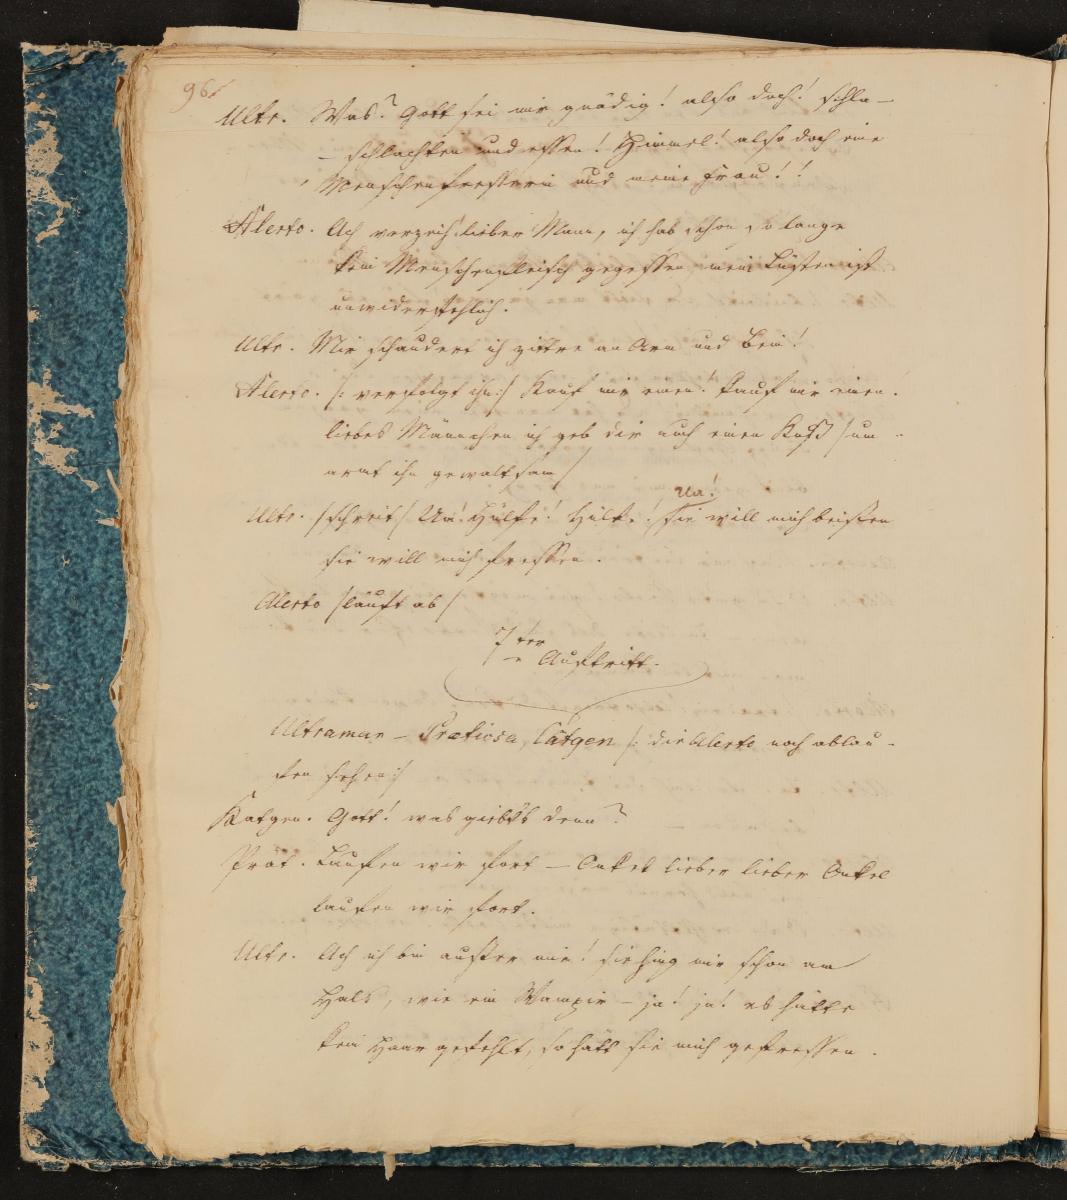 96
Ultr. Was? Gott sei mir gnädig! also doch! schla-
- schlachten und essen! Himmel! also doch eine
Menschenfresserin und meine Frau!!
Alerto. Ach verzeih lieber Mann, ich hab schon so lange
kein Menschenfleisch gegessen mein Lüsten ist
unwiderstehlich.
Ultr. Mir schaudert ich zittre an Arm und Bein!
Alerto. /: verfolgt ihn :/ Kauf mir einen! kauf mir einen!
liebes Männchen ich geb dir auch einen Kuß / um-
armt ihn gewaltsam /
Ua!
Ultr. / schreit / Ua! Hülfe! Hülfe! sie will mich beißen
sie will mich fressen.
Alerto / läuft ab /
7ter
Auftritt.
Ultraman - Pretiosa, Cätgen /: die Alerto noch ablau-
fen sehen :/
Katgen. Gott! was giebts denn?
Prät. Laufen wir fort - Onkel lieber lieber Onkel
laufen wir fort.
Ultr. Ach ich bin ausser mir! sie hing mir schon am
Hals, wie ein Vampir - ja! ja! es hätte
kein Haar gefehlt, so hätt sie mich gefressen.